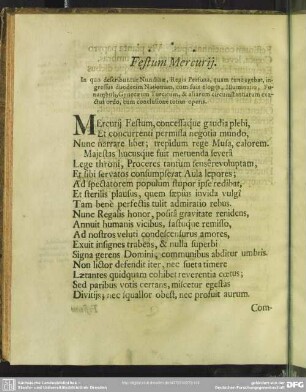 Festum Mercurij.
In quo describuntur Nundinæ, Regis Persona, quam
gressus Nationum, cum
Gynæceum & aliarum
ordo, cum conclusione totius operis.
MErcurij Festum, concessaque gaudia plebi,
Et concurrenti permissa negotia mundo,
Nunc narrare libet; trepidum rege Musa, calorem.
Majestas hucusque fuit metuenda severi
Lege throni, Proceres tantùm sensêre voluptam,
Et sibi servatos consumpserat Aula lepores;
Ad spectatorem populum stupor ipse redibat,
Et sterilis plausus, quem sæpius invida vulgi
Tam benè perfectis tulit admiratio rebus.
Nunc Regalis honor, positâ gravitate renidens,
Annuit humanis vicibus, fastuque remisso,
Ad nostros veluti condescensurus amores,
Exuit insignes trabeas, & nulla superbi
Signa gerens Domini, communibus abditur umbris.
Non lictor defendit iter, nec sueta timere
Lætantes quidquam cohibet reverentia cœtus;
Sed paribus votis certans, miscetur egestas
Divitijs; nec squallor obest, nec profuit aurum.
Com-